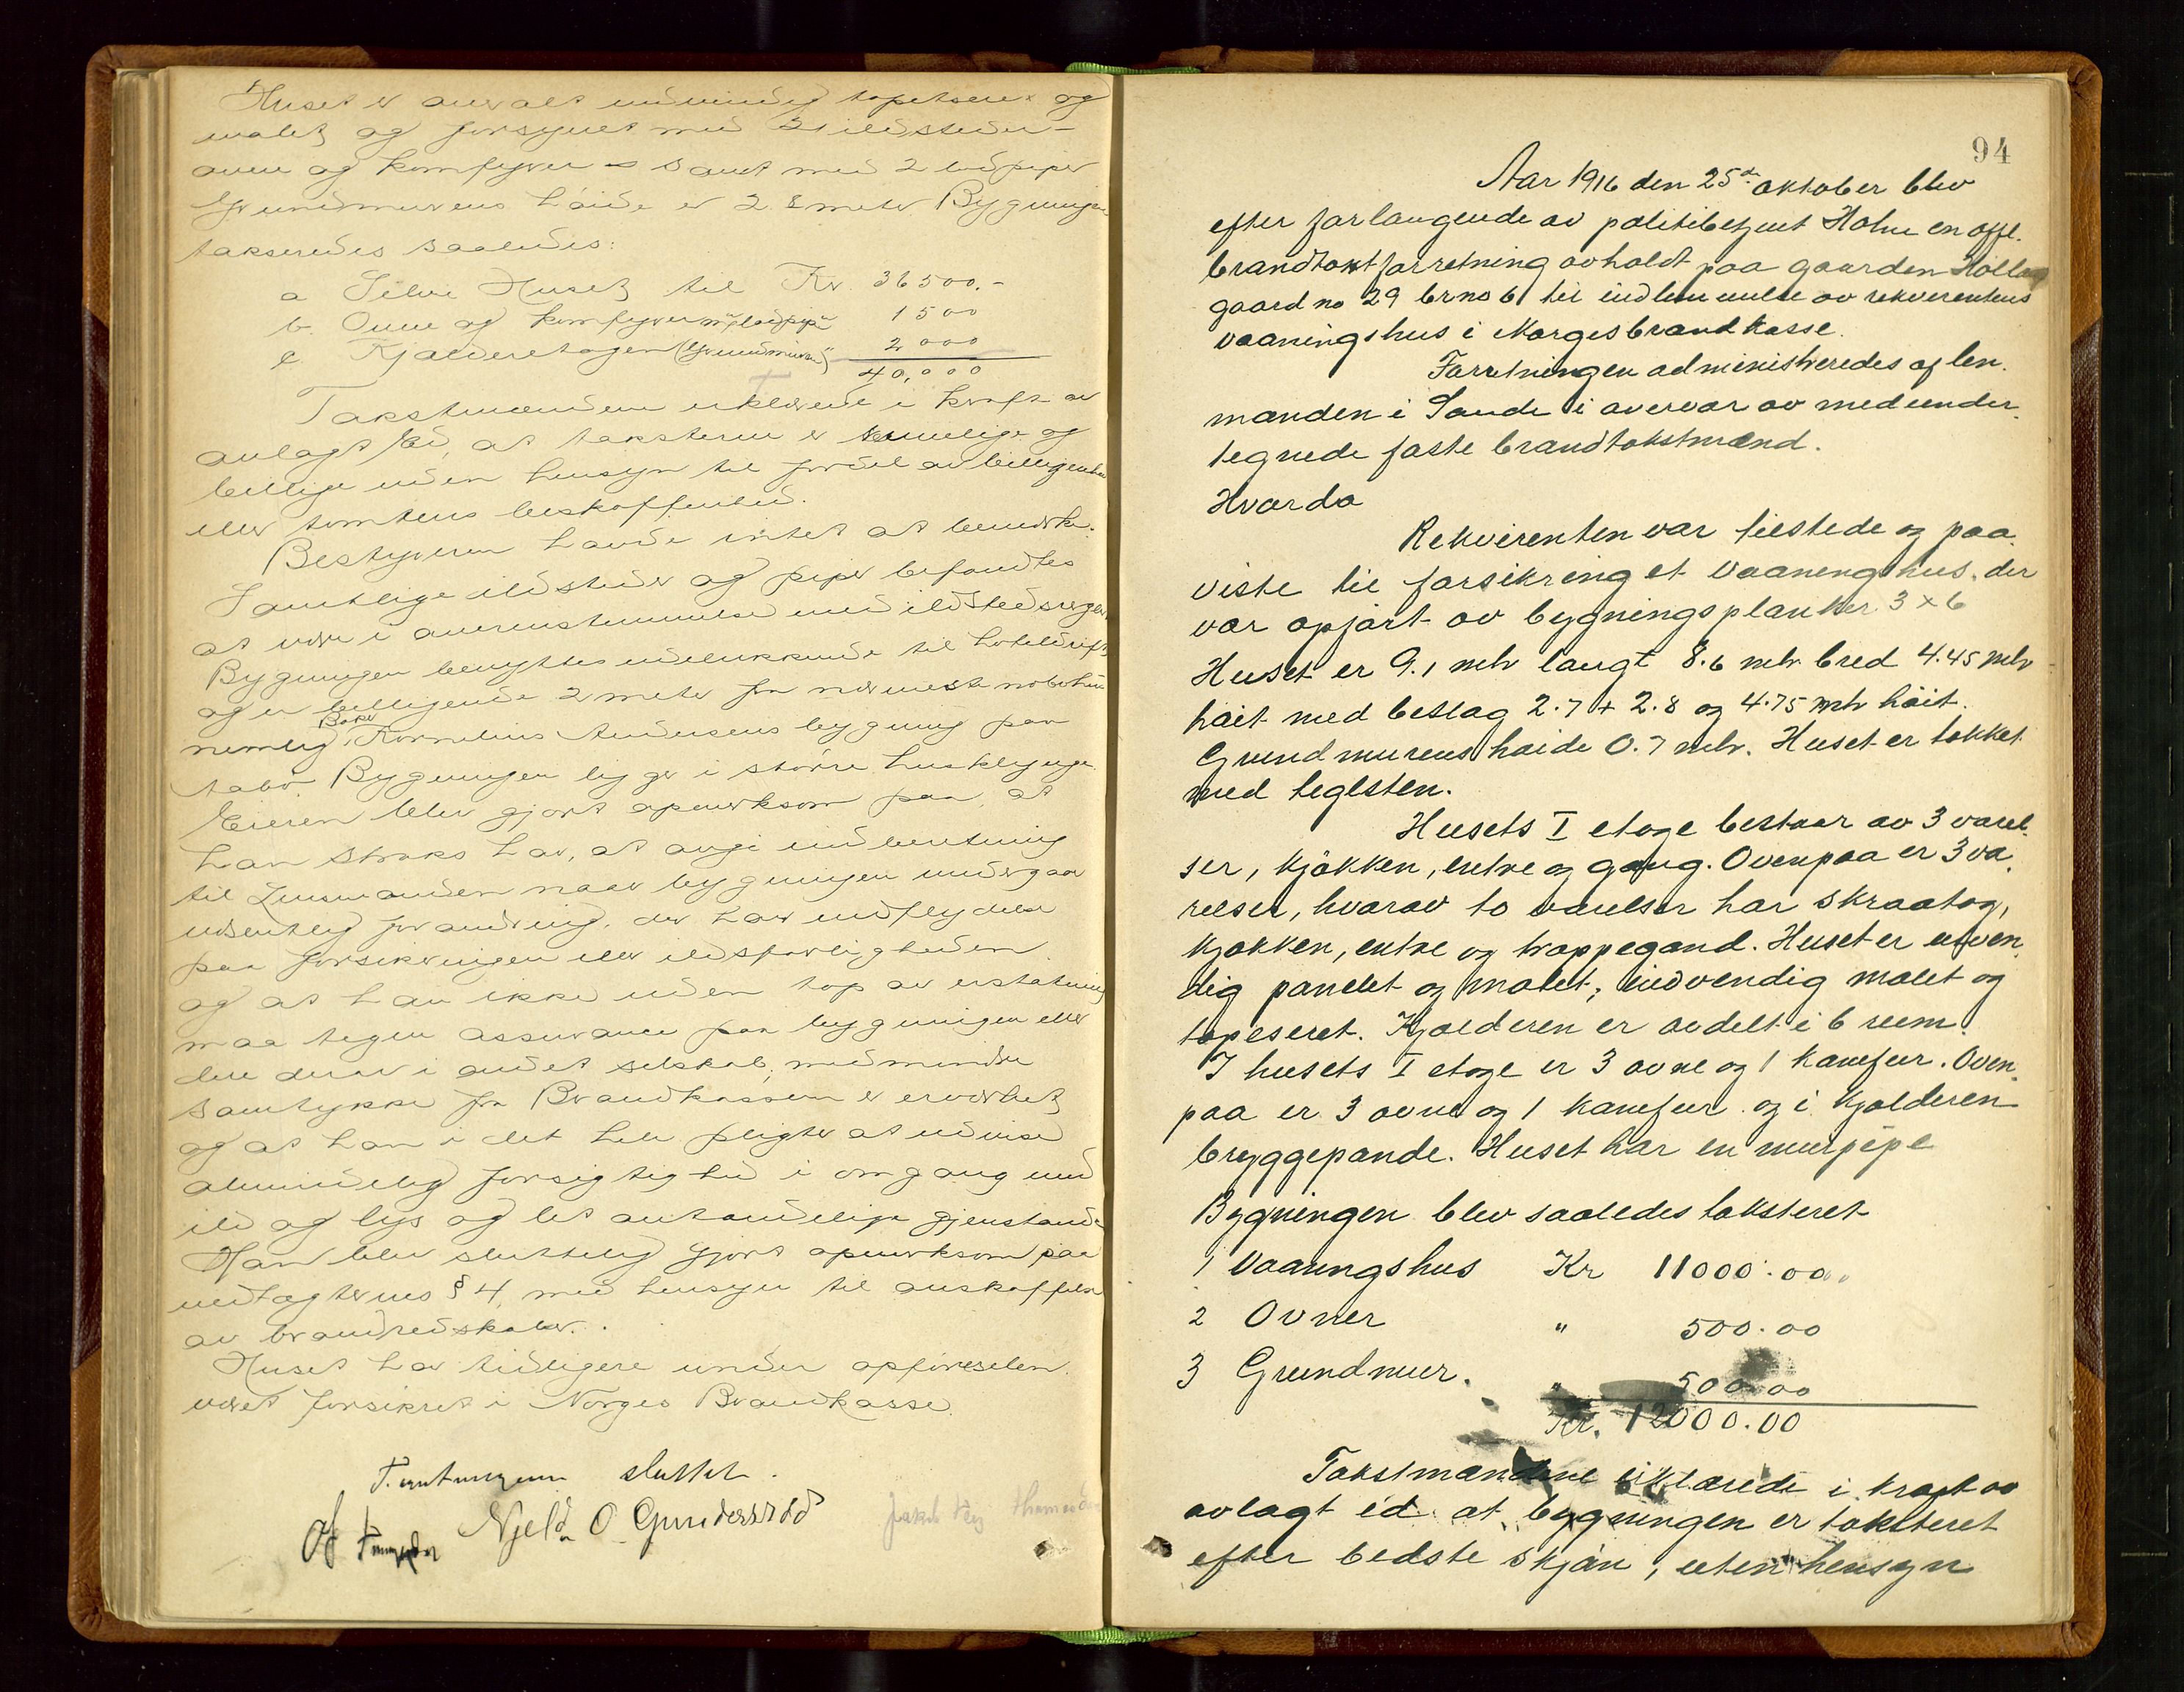 Huset er overalt indvendig tapetseret og
malet og forsynet med 21 ildsteder –
ovne og komfyrer – samt med 2 lodpiper
Grundmurens høide er 2.8 meter Bygningen
takseredes saaledes:
a Selve Huset til Kr. 36500.-
b. Ovne og komfyrer m/lodpiper 1500
c. Kjælderetagen (Grundmuren) 2000
40,000
Takstmændene erklærede i kraft av
avlagt Ed, at taksterne er rimelige og
billige uden hensyn til fordel av beliggenhed
eller tomtens beskaffenhed.
Bestyreren havde intet at bemerke.
Samtlige ildsteder og piper befandtes
at være i overensstemmelse med ildstedsregler
Bygningen benyttes udelukkende til hoteldrift
og er beliggende 2 meter fra nærmeste nabohus
nemlig Baker Kornelius Andersens bygning paa
Bygningen ligger i større husklynge.
Eieren blev gjort opmerksom paa, at
han straks har, at avgi indberetning
til Lensmanden naar bygningen undergaar
væsentlig forandring, der har indflydelse
paa forsikringen eller ildsfarligheden
og at han ikke uden tap av erstatning
maa tegne assurance paa bygningen eller
dele derav i andet selskab, medmindre
samtykke fra Brandkassen er erhvervet
og at han i det hele pligter at udvise
almindelig forsigtighed i omgang med
ild og lys og let antændelige gjenstande
Han blev sluttelig gjort opmerksom paa
vedtægternes § 4, med hensyn til anskaffelse
av brandredskaber.
Huset har tidligere under opførelsen
været forsikret i Norges Brandkasse.
Forretningen sluttet.
Njeld O Gundersrød
Jakob Thomasen
94
Aar 1916 den 25de oktober blev
efter forlangende av politibetjent Holm en offl.
brandtakstforretning avholdt paa gaarden Holla
gaard no 29 brno 6 til indlemmelse av rekverentens
vaaningshus i Norges brandkasse.
Forretningen administreredes af len.
manden i Sande i overvær av medunder.
tegnede faste brandtakstmænd.
Hvorda
Rekvirenten var tilstede og paa.
viste til forsikring et vaaningshus, der
var opført av bygningsplanker 3 x 6
Huset er 9.1 mtr langt 8.6 mtr bred 4.45 mtr
høit med beslag 2.7 + 2.8 og 4.75 mtr høit.
Grundmurens høide 0.7 mtr. Huset er tækket
med teglsten.
Husets I etage bestaar av 3 værel.
ser, kjøkken, entre og gang. Ovenpaa er 3 væ.
relser, hvorav to værelser har skraatag,
kjøkken, entre og trappegand. Huset er utven.
dig panelet og malet; indvendig malet og
tapeseret. Kjælderen er avdelt i 6 rum.
I husets I etage er 3 ovne og 1 kamfur. Oven.
paa er 3 ovne og 1 kamfur og i kjælderen
bryggepande. Huset har en murpipe
Bygningen blev saaledes taksteret
1 Vaaningshus Kr 11000.00
2 Ovner " 500.00
3 Grundmur. " 500.00
Kr. 12000.00
Takstmændene erklærede i kraft av
avlagt ed at bygningen er taksteret
efter bedste skjøn, uten hensyn